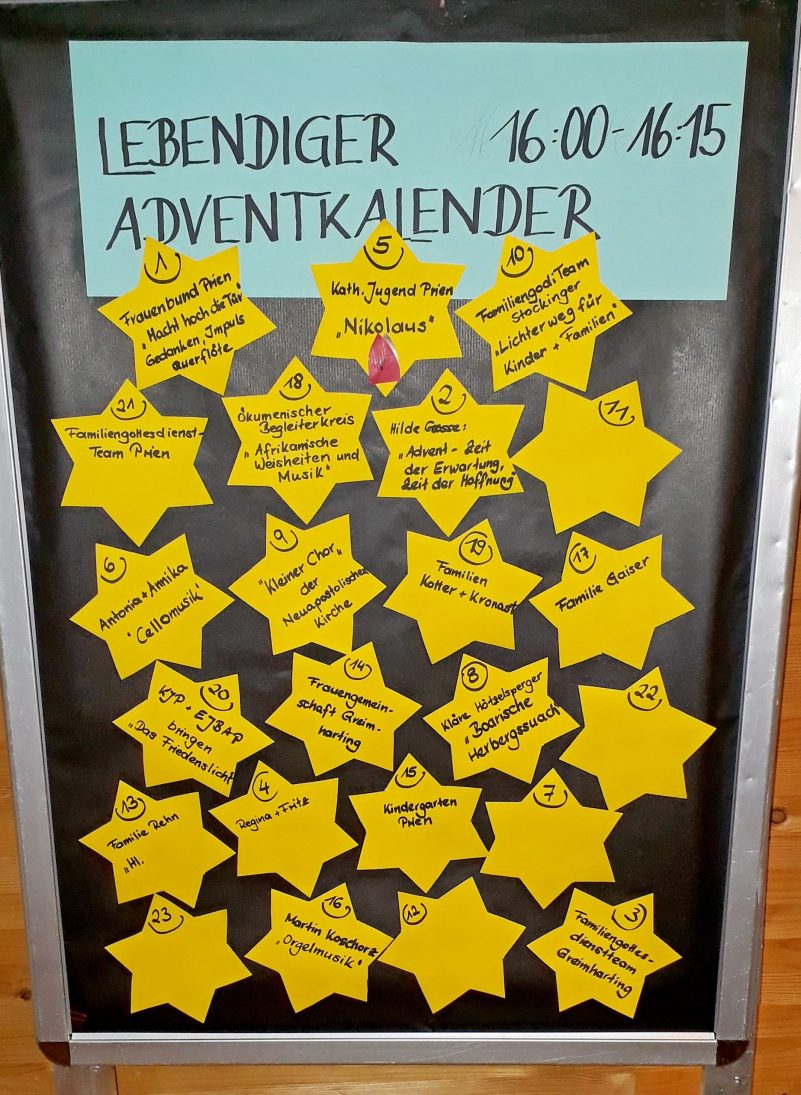 LEBENDIGER 16:00-16:15
ADVENTKALENDER
1
Frauenbund Prien
"Macht hoch die Tür"
Gedanken, Impuls
Querflöte
5
Kath. Jugend Prien
„Nikolaus"
10
FamiliengodiTeam
Stockinger
"Lichterweg für
Kinder + Familien"
21
Familiengottesdienst-
Team Prien
18
Ökumenischer
Begleiterkreis
„Afrikanische
Weisheiten und
Musik"
2
Hilde Grosse:
„Advent - Zeit
der Erwartung,
Zeit der Hoffnung"
11
6
Antonia + Annika
'Cellomusik'
9
"Kleiner Chor"
der
Neuapostolischen
Kirche
19
Familien
Kotter + Kronast
17
Familie Gaiser
20
KJP + EJBAP
bringen
„Das Friedenslicht"
14
Frauengemein-
schaft Greim-
harting
8
Kläre Hötzelsperger
„Boarische
Herbergssuach"
22
13
Familie Rehn
„Hl.
4
Regina + Fritz
15
Kindergarten
Prien
7
23
16
Martin Koschorz
„Orgelmusik"
12
3
Familiengottes-
dienstteam
Greimharting